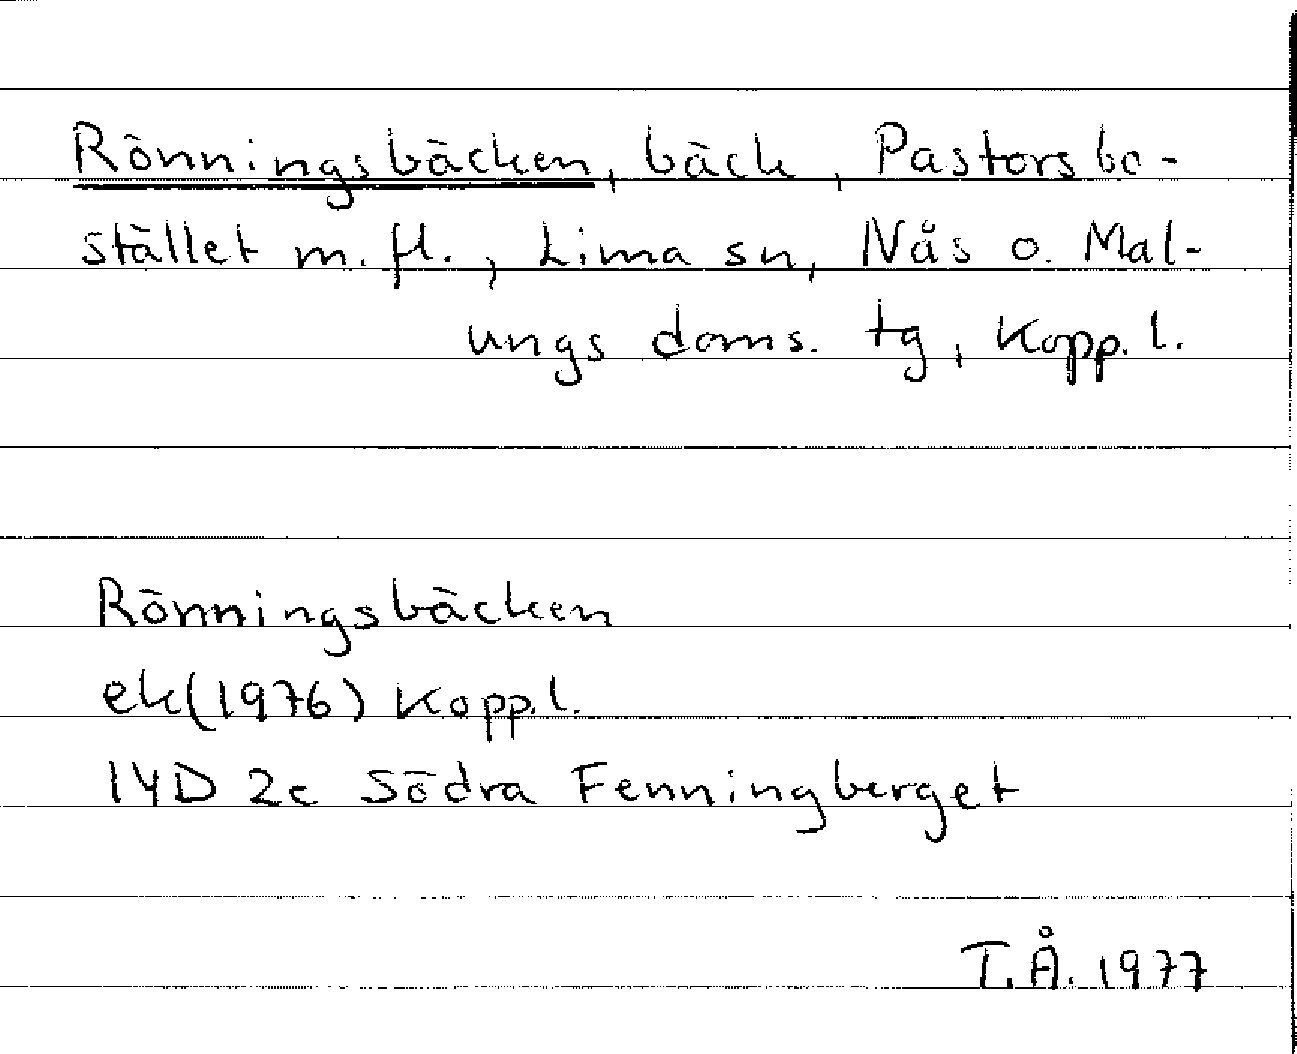 Rönningsbäcken, bäck, Pastorsbo-
stället m.fl., Lima sn, Nås o. Mal-
ungs doms. tg, Kopp.l.
Rönningsbäcken
ek(1976) Kopp.l.
14D 2c Södra Fenningberget
T.Å. 1977